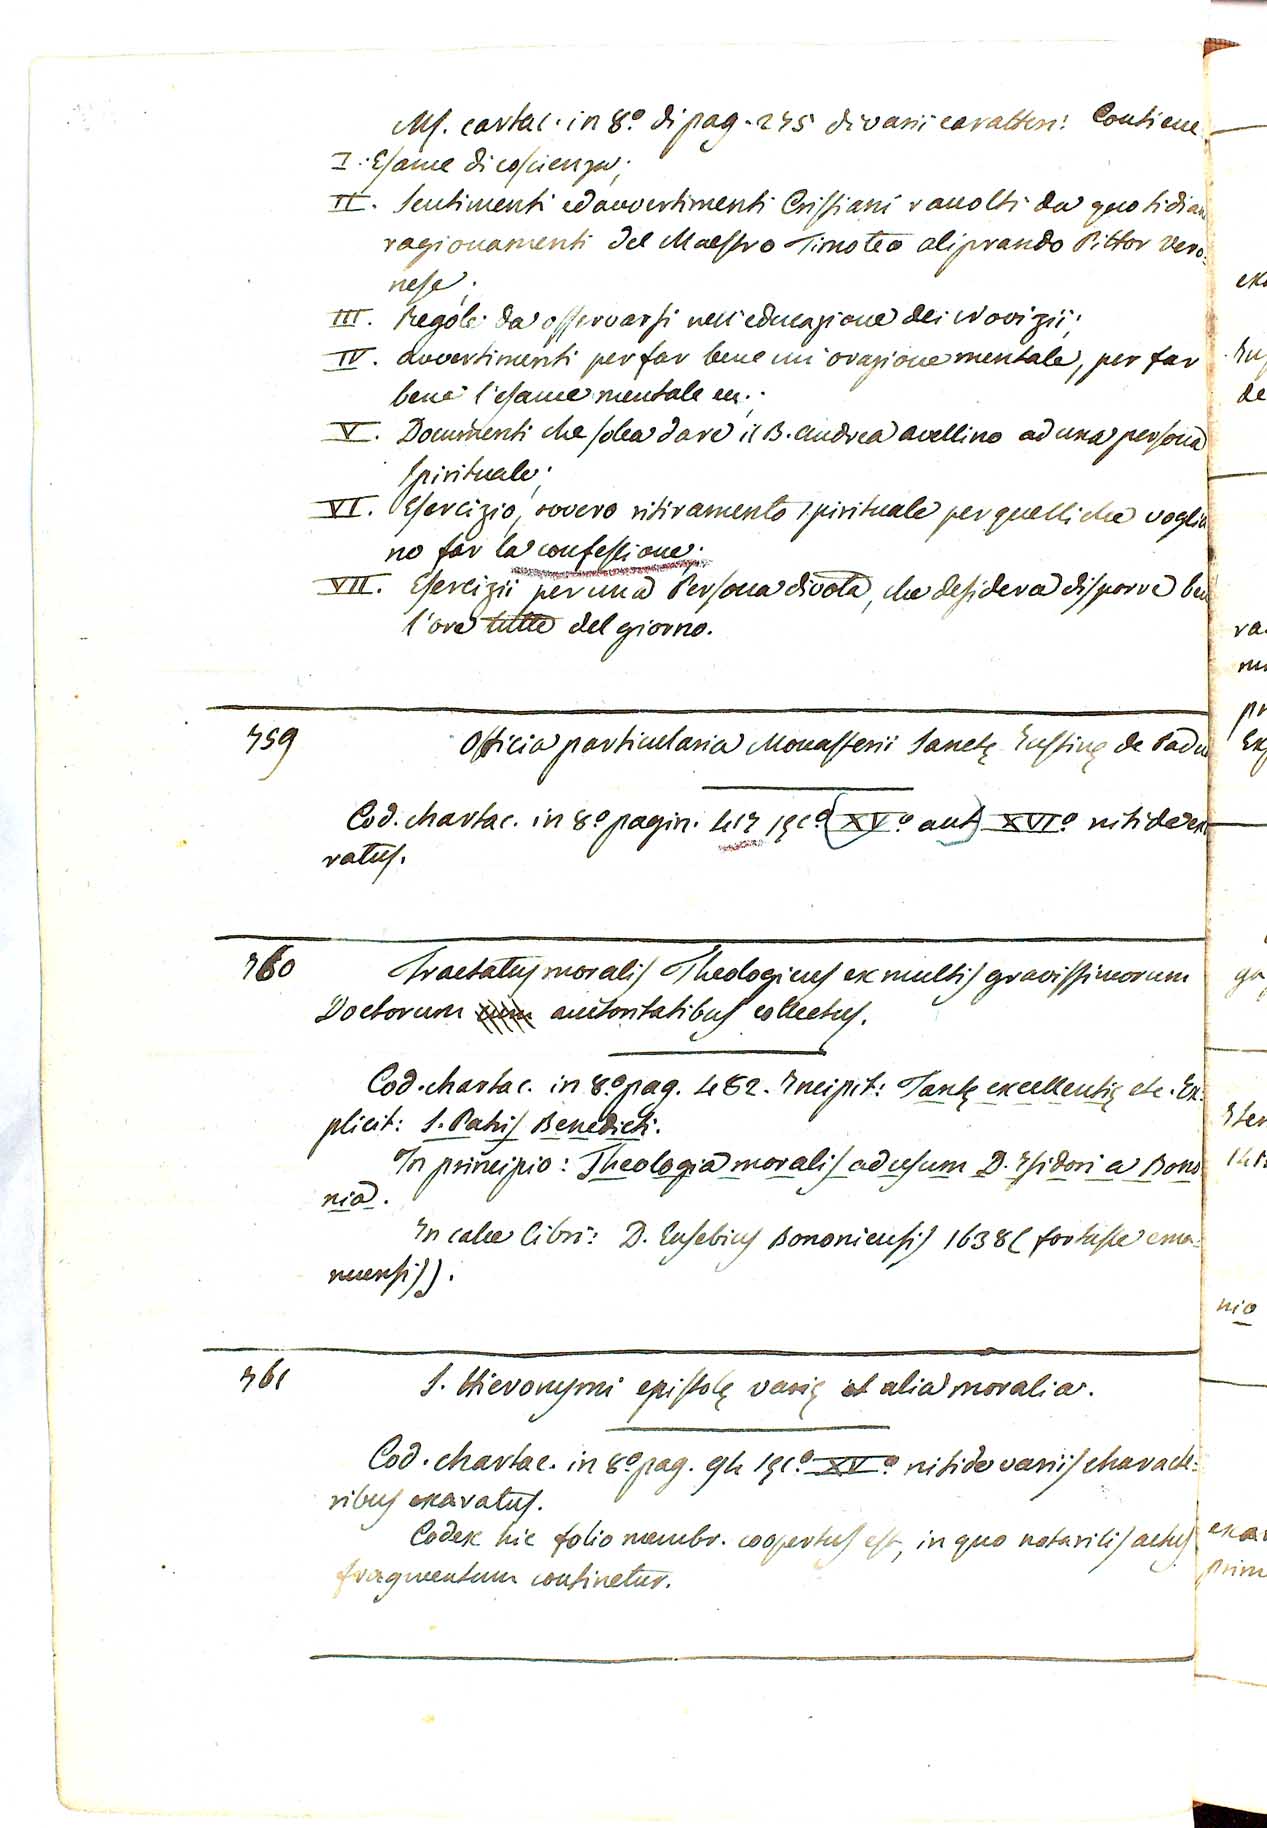 Ms. cartac. in 8.º di pag. 275 di varii caratteri: Contiene
I. Esame di coscienza;
II. Sentimenti ed avvertimenti Cristiani raccolti da quotidian
ragionamenti del Maestro Timoteo aliprando Pittor Vero:
nese;
III. Regole da osservarsi nell'educazione dei Novizii;
IV. avvertimenti per far bene un'orazione mentale, per far
bene l'esame mentale ec.;
V. Documenti che solea dare il B. andrea avellino ad una persona
spirituale;
VI. Esercizio, ovvero ritiramento spirituale per quelli che voglio
no far la confessione;
VII. Esercizii per una Persona divota, che desidera disporre ben
l'ore tutte del giorno.
759
Officia particularia Monasterii Sanctę Iustinę de Padu
Cod. chartac. in 8.º pagin. 417 sęc.º (XV.º aut) XVI.º nitide exa
ratus.
760
Tractatus moralis Theologicus ex multis gravissimorum
Doctorum auctoritatibus collectus.
Cod. chartac. in 8.º pag. 482. Incipit: Tantę excellentię etc. Ex:
plicit: S. Patris Benedicti.
In principio: Theologia moralis ad usum D. Isidori a Bono
nia.
In calce libri: D. Eusebius Bononiensis 1638 (fortasse ama:
nuensis).
761
S. Hieronymi epistolę varię et alia moralia.
Cod. chartac. in 8.º pag. 94 sęc.º XV.º nitide variis characte:
ribus exaratus.
Codex hic folio membr. coopertus est, in quo notarilis actus
fragmentum continetur.